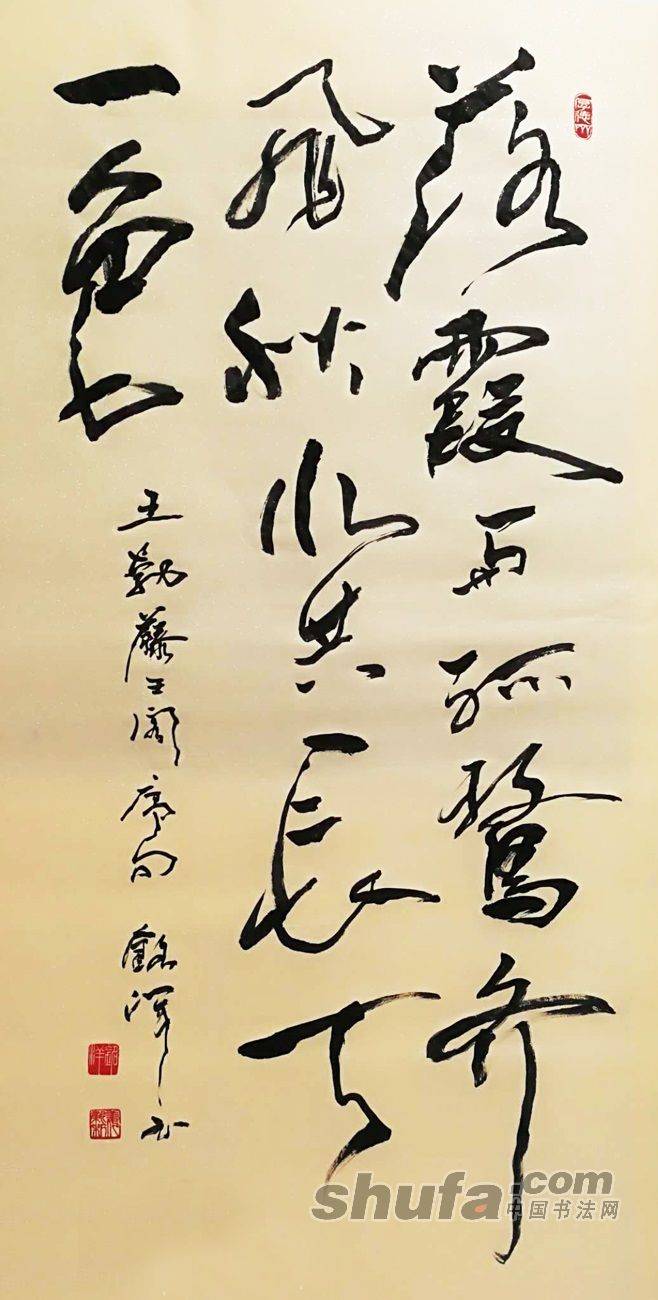 落霞与孤鶩齐
飛秋水共長天
一色
王勃藤王阁序句 銘洋书
shufa.com
中国书法网